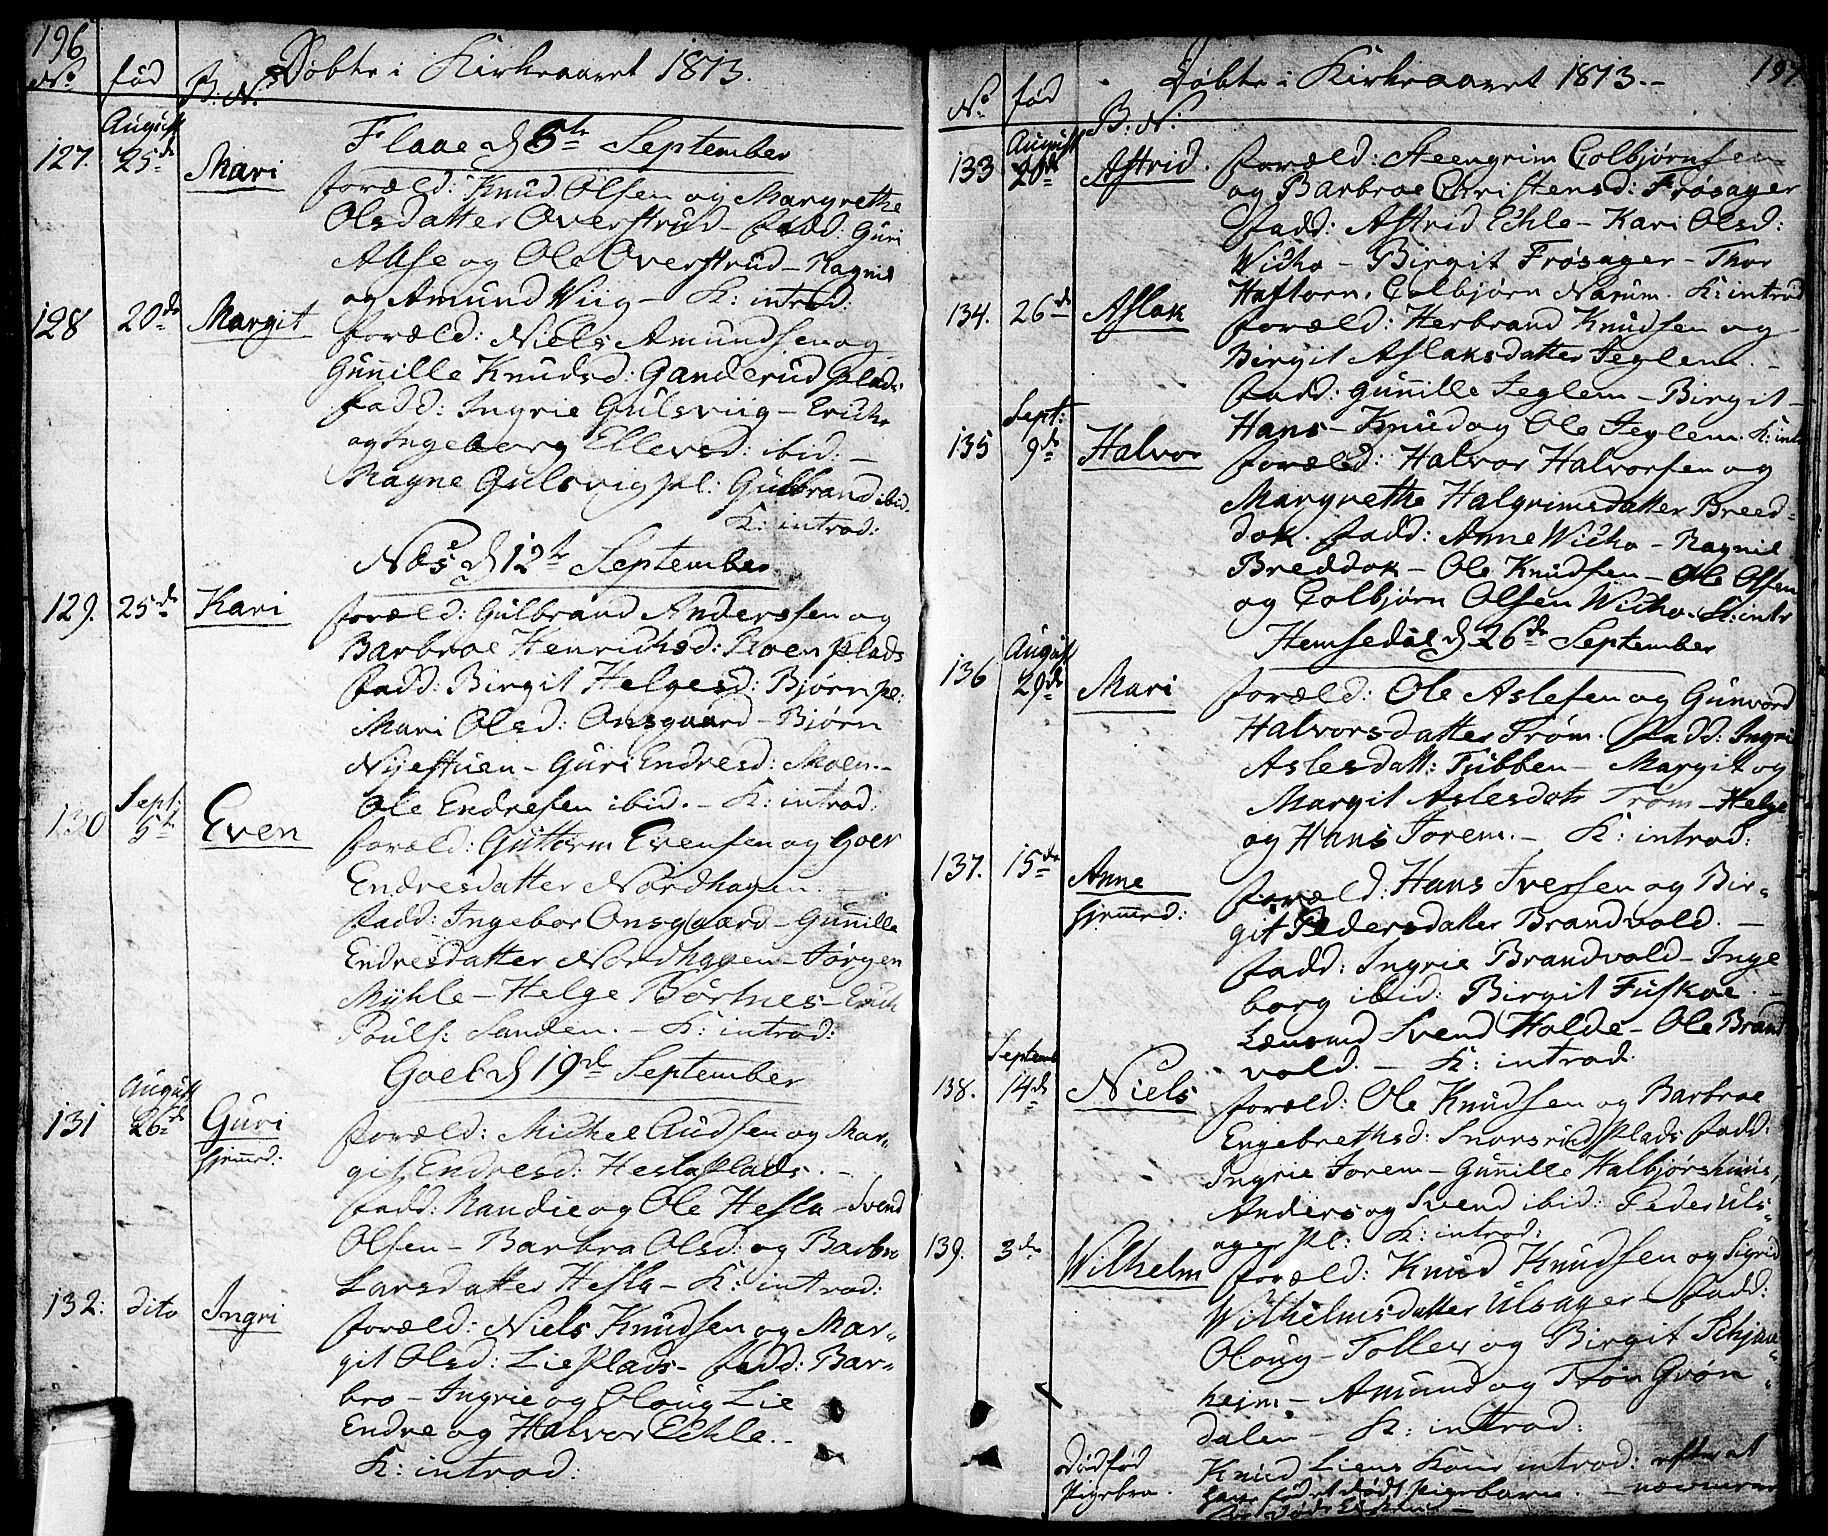 196
Døbte i Kirkeaaret 1813.
No fød B: N:
Flaae d 5te September
127. August 25de Mari
foræld: Knud Olsen og Margrethe
Olsdatter Overstrud - fadd: Guri
Aase og Ole Overstrud - Ragnil
og Amund Wiig - K: introd:
128 20de Margit
foræld: Niels Amundsen og
Gunille Knudsd: Ganderud Plads
fadd: Ingrie Gulsviig - Erich
og Ingeborg Ellevsd: ibid: -
Magne Gulsvig pl: Gulbrand ibid.
K: introd:
Næs d 12te September
129. 25de Kari
foræld: Gulbrand Anderssen og
Barbroe Henrichsd: Roen Plads
fadd: Birgit Helgesd: Bjørn pl:
Mari Olsd: Onsgaard - Bjørn
Nyestuen - Guri Endresd: Moen -
Ole Endresen ibid. - K: introd:
130 Sept: 5te Even
foræld: Guttorm Evensen og Goer
Endresdatter Nordhagen. -
fadd: Ingebor Onsgaard - Gunille
Endresdatter Nordhagen - Jørgen
Myhle - Helge Børtnes - Erich
Pouls: Sanden. - K: introd:
Goel d 19de September
131 August 26de Guri
hjemmed:
foræld: Michel Audsen og Mar-
git Endresd: Hesla Plads. -
fadd: Randie og Ole Hesla - Svend
Olsen - Barbra Olsd: og Barbro
Larsdatter Hesla - K: introd:
132: dito Ingri
foræld: Niels Knudsen og Mar-
git Olsd: Lie Plads - fadd: Bar-
bro - Ingrie og Oloug Lie
Endre og Halvor Echle. -
K: introd:
197.
Døbte i Kirkeaaret 1813. -
No fød B: N:
133 August 20de Astrid.
foræld: Steengrim Colbjørnsen
og Barbroe Christensd: Frøsager
fadd: Astrid Echle - Kari Olsd:
Wicho - Birgit Frøsager - Thor
Haftorn, Colbjørn Narum. K: introd
134. 26de Aslak
foræld: Herbrand Knudsen og
Birgit Aslaksdatter Jeglem. -
fadd: Gunille Jeglem - Birgit -
Hans - Knud og Ole Jeglem. K: int
135 Sept: 9de Halvor
foræld: Halvor Halvorsen og
Margrethe Halgrimsdatter Breed-
dok. fadd: Anne Wicho - Ragnil
Breddok - Ole Knudsen - Ole Olsen
og Colbjørn Olsen Wicho. K: intr
Hemsedal d 26de September
136 August 29de Mari
foræld: Ole Aslesen og Gunvord
Halvorsdatter Trøm. fadd: Ingri
Aslesdatt: Tubben - Margit og
Margit Aslesdotr Trøm - Helge
og Hans Torem. - K: introd:
137. 15de Anne
hjemmed:
foræld: Hans Iversen og Bir-
git Pedersdatter Brandvold. -
fadd: Ingrie Brandvold - Inge
borg ibid: Birgit Fuskoe. -
Lænsmd Svend Holde - Ole Brand
vold. - K: introd:
138. Septemb 14de Niels
foræld: Ole Knudsen og Barbroe
Engebrethsd: Snorsrud Plads fadd:
Ingrie Torem - Gunille Halbjørshuus,
Anders og Svend ibid: Peder Uls-
ager Pl: K: introd:
139. 3de Wilhelm
foræld: Knud Knudsen og Sigrid
Wilhelmsdatter Ulsager - fadd:
Oloug - Tollev og Birgit Schjau-
heim - Amund og Troen Grøn-
dalen - K: introd:
Dødfød
Pigebrn.
Knud Liens Kone introd: efter at
have født et dødt Pigebarn. -